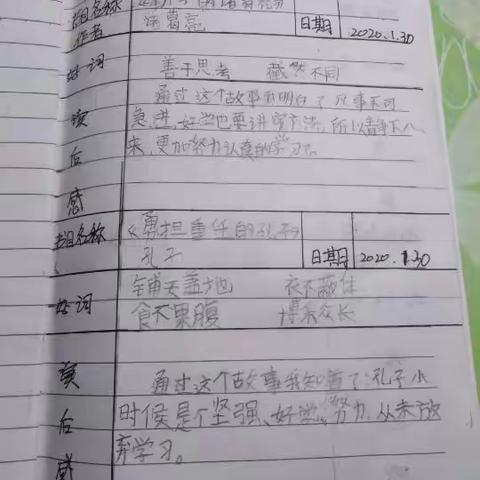 题目名称
作者
诸葛亮
日期
2020.1.30
好词
善于思考 截然不同
读后感
通过这个故事我明白了凡事不可
急进,好学也要讲究方法,所以静下心
来,更加努力认真的学习。
题目名称
《勇担重任的孔子》
孔子
日期
2020.1.30
好词
铺天盖地 衣不蔽体
食不果腹 博采众长
读后感
通过这个故事我知道了:孔子小
时候是个坚强、好学、努力、从未放
弃学习。